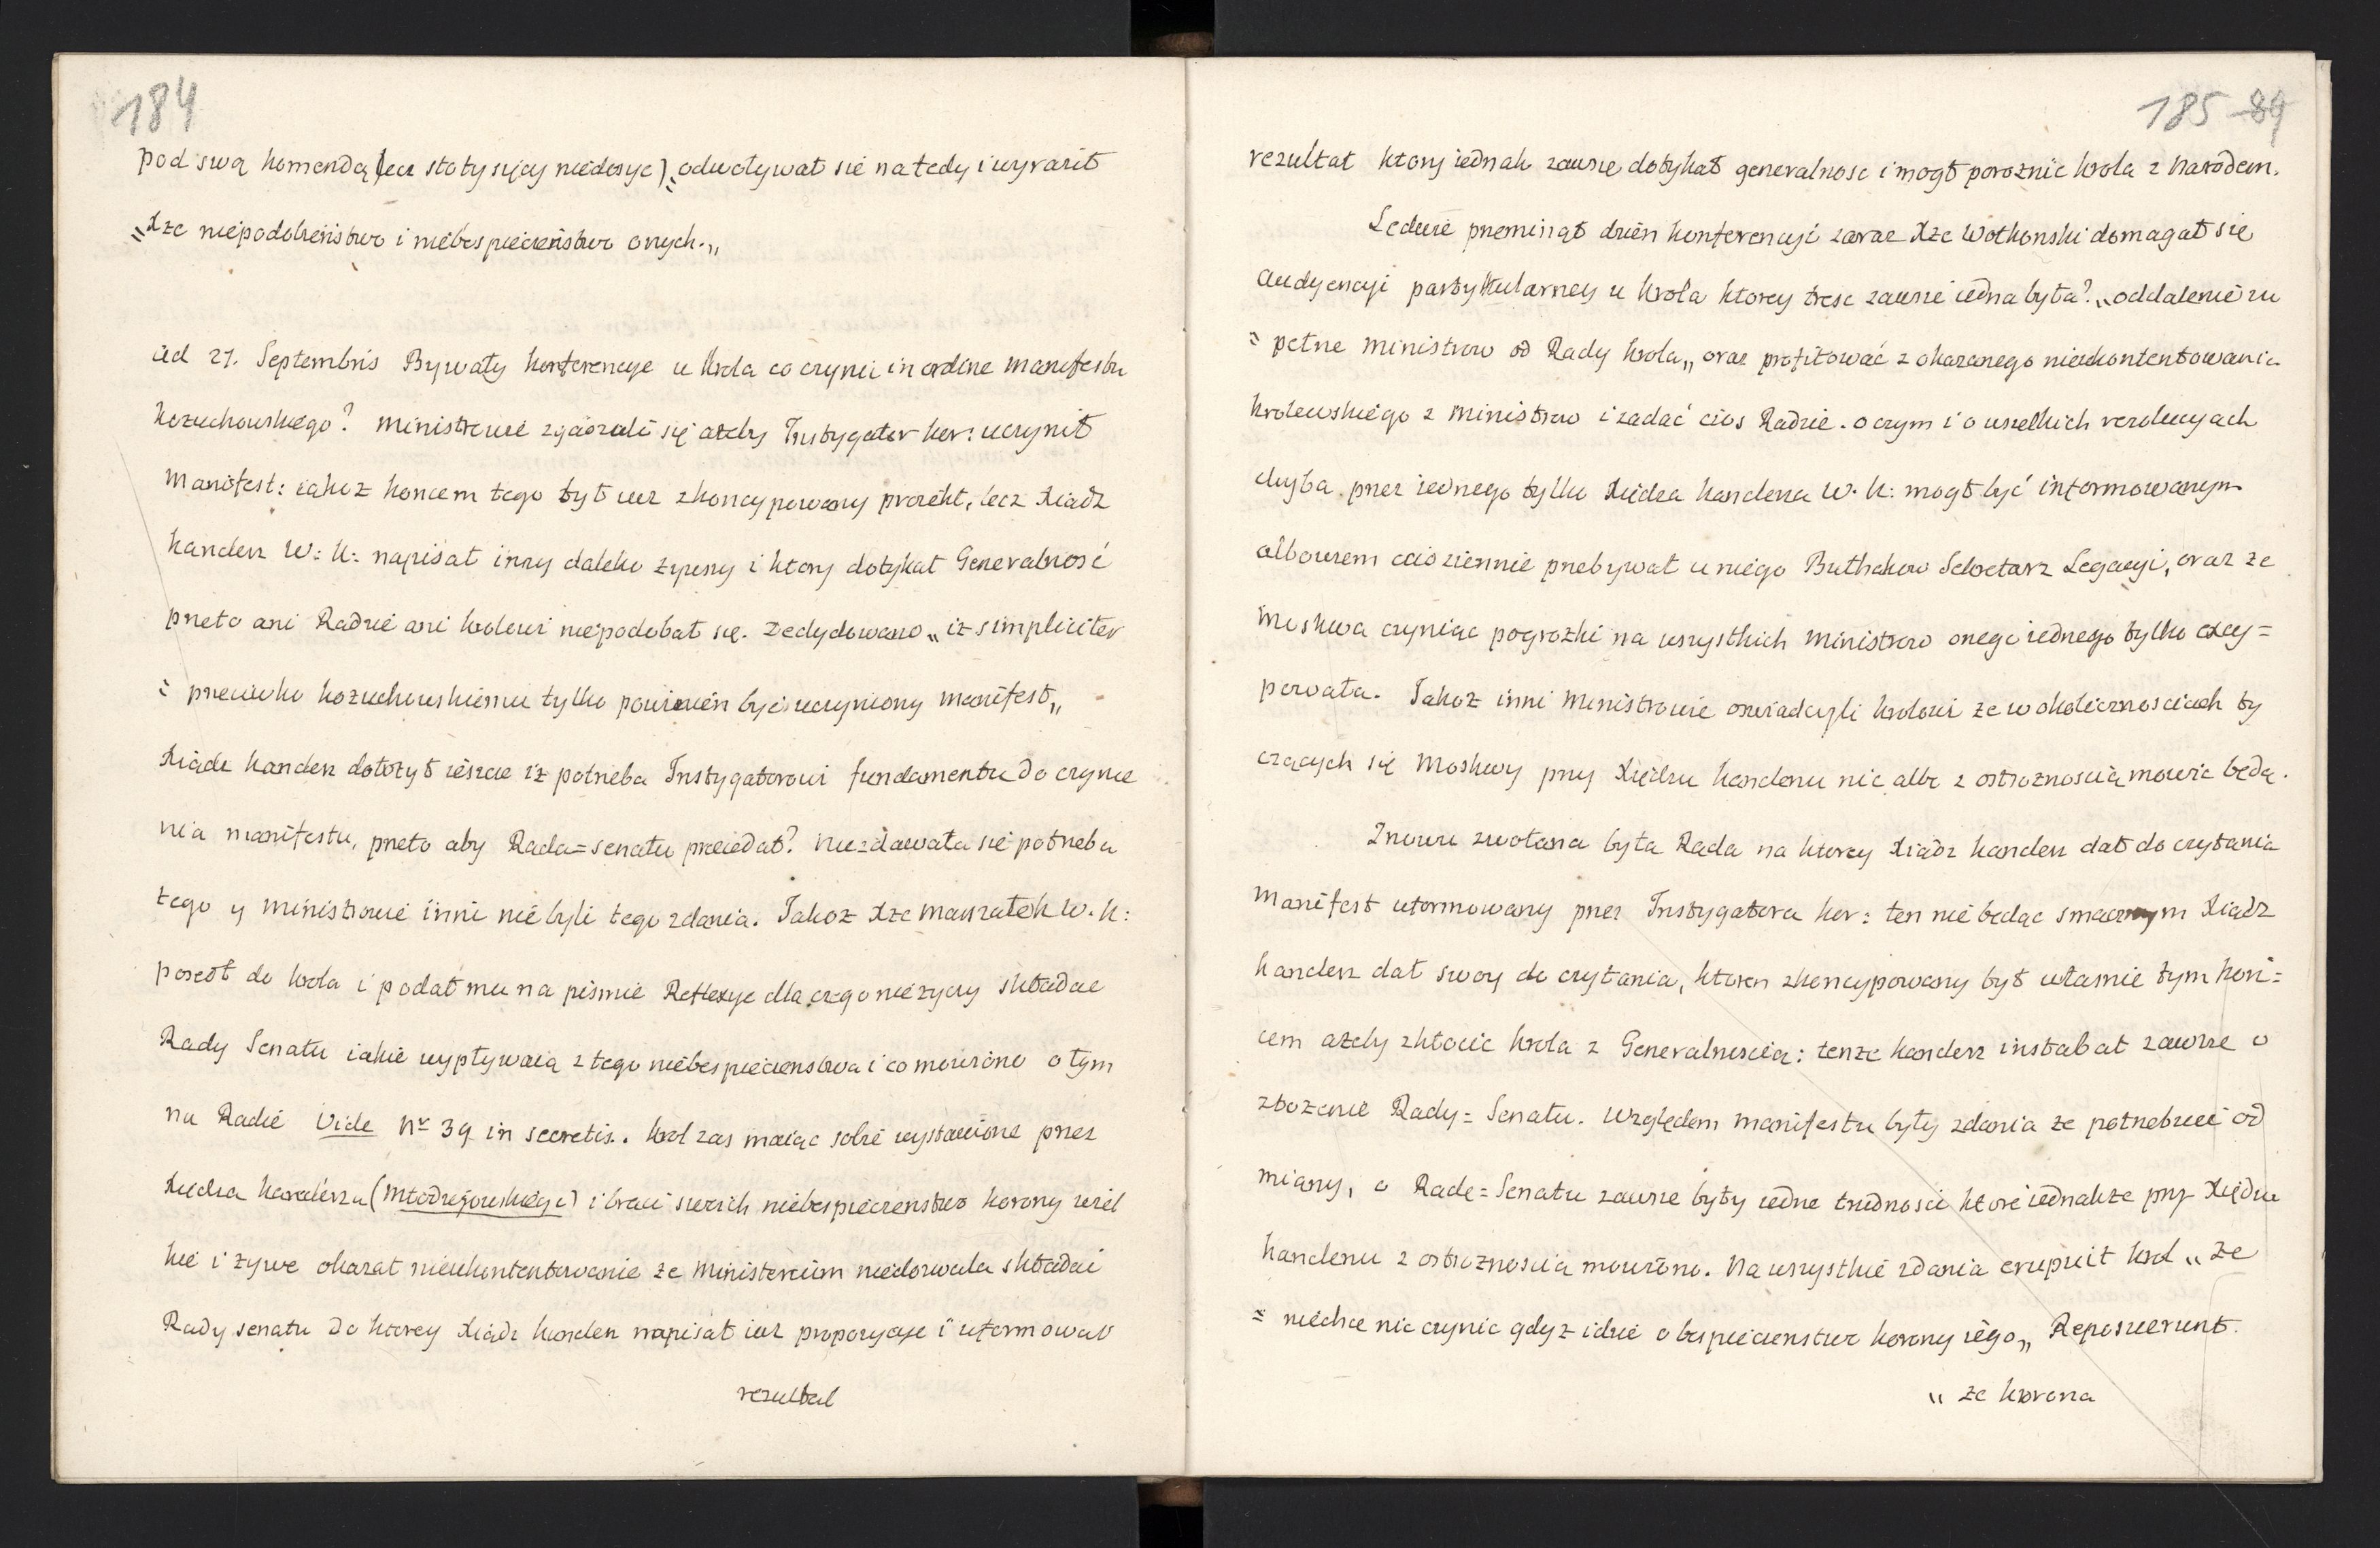 184
pod swą komendą (lecz stotysięcy niedosyc) „odwoływał się na tedy i wyraził
„Xże niepodobieństwo i niebespieczeństwo onych.„
ad 27. Septembris Bywały konferencye u Krola co czynić in ordine manifestu
Kozuchowskiego? Ministrowie zgadzali się ażeby Instygator kor: uczynił
manifest: iakoż koncem tego był iuż zkoncypowany proiekt, lecz Xiądz
Kanclerz W: K: napisał inny daleko żywszy i ktory dotykał Generalność
przeto ani Radzie ani krolowi niepodobał się. Zedydowano „iż simpliciter
„ przeciwko Kozuchowskiemu tylko powinien być uczyniony manifest„
Xiądz Kanclerz dołożył ieszcze iż potrzeba Instygatorowi fundamentu do czynie
nia manifestu, przeto aby Rada=senatu precedat? niezdawała się potrzeba
tego y ministrowie inni nie byli tego zdania. Jakoż Xże Marszałek W. K:
poszedł do krola i podał mu na piśmie Reflexye dla czego nieżyczy składać
Rady Senatu iakie wypływaią z tego niebespieczenstwa i co mowiono o tym
na Radzie Vide Nr 39 in secretis. Krol zas maiąc sobie wystawione przez
Xiędza Kanclerza (Młodzieiowskiego) i braci swoich niebespieczenstwo korony wiel
kie i żywe okazał nieukontentowanie że Ministerium niedozwala składać
Rady senatu do ktorey Xiądz Kanclerz napisał iuż propozycye i uformował
rezultat
185 84
rezultat ktory iednak zawsze dotykał generalnosc i mogł poroznic krola z narodem.
Ledwie przeminął dzien konferencyi zaraz Xże Wołkonski domagał się
audyencyi partykularney u krola ktorey tresc zawsze iedna była? „oddalenie zu
„ pełne ministrow od Rady krola„ oraz profitować z okazanego nieukontentowania
krolewskiego z ministrow i zadać cios Radzie. o czym i o wszelkich rezolucyach
chyba przez iednego tylko Xiędza Kanclerza W. K: mogł być informowanym
albowiem codziennie przebywał u niego Bułhakow Sekretarz Legacyi, oraz że
Moskwa czyniąc pogrozki na wszystkich ministrow onego iednego tylko excy=
powała. Jakoż inni ministrowie oswiadczyli krolowi że w okolicznosciach ty
czących się Moskwy przy Xiędzu Kanclerzu nic albo z ostroznoscią mowic będą.
Znowu zwołana była Rada na ktorey Xiądz Kanclerz dał do czytania
manifest uformowany przez Instygatora kor: ten nie będąc smacznym Xiądz
Kanclerz dał swoy do czytania, ktoren zkoncypowany był własnie tym kon=
cem ażeby zkłocic krola z Generalnoscią: tenże Kanclerz instabat zawsze o
złozenie Rady=Senatu. Względem manifestu były zdania że potrzebuie od
miany, o Radę=Senatu zawsze były iedne trudnosci ktore iednakże przy Xiędzu
Kanclerzu z ostroznoscią mowiono. Na wszystkie zdania erupuit krol „że
„ niechce nic czynic gdyż idzie o bespieczenstwo korony iego„ Reposuerunt.
„ że korona